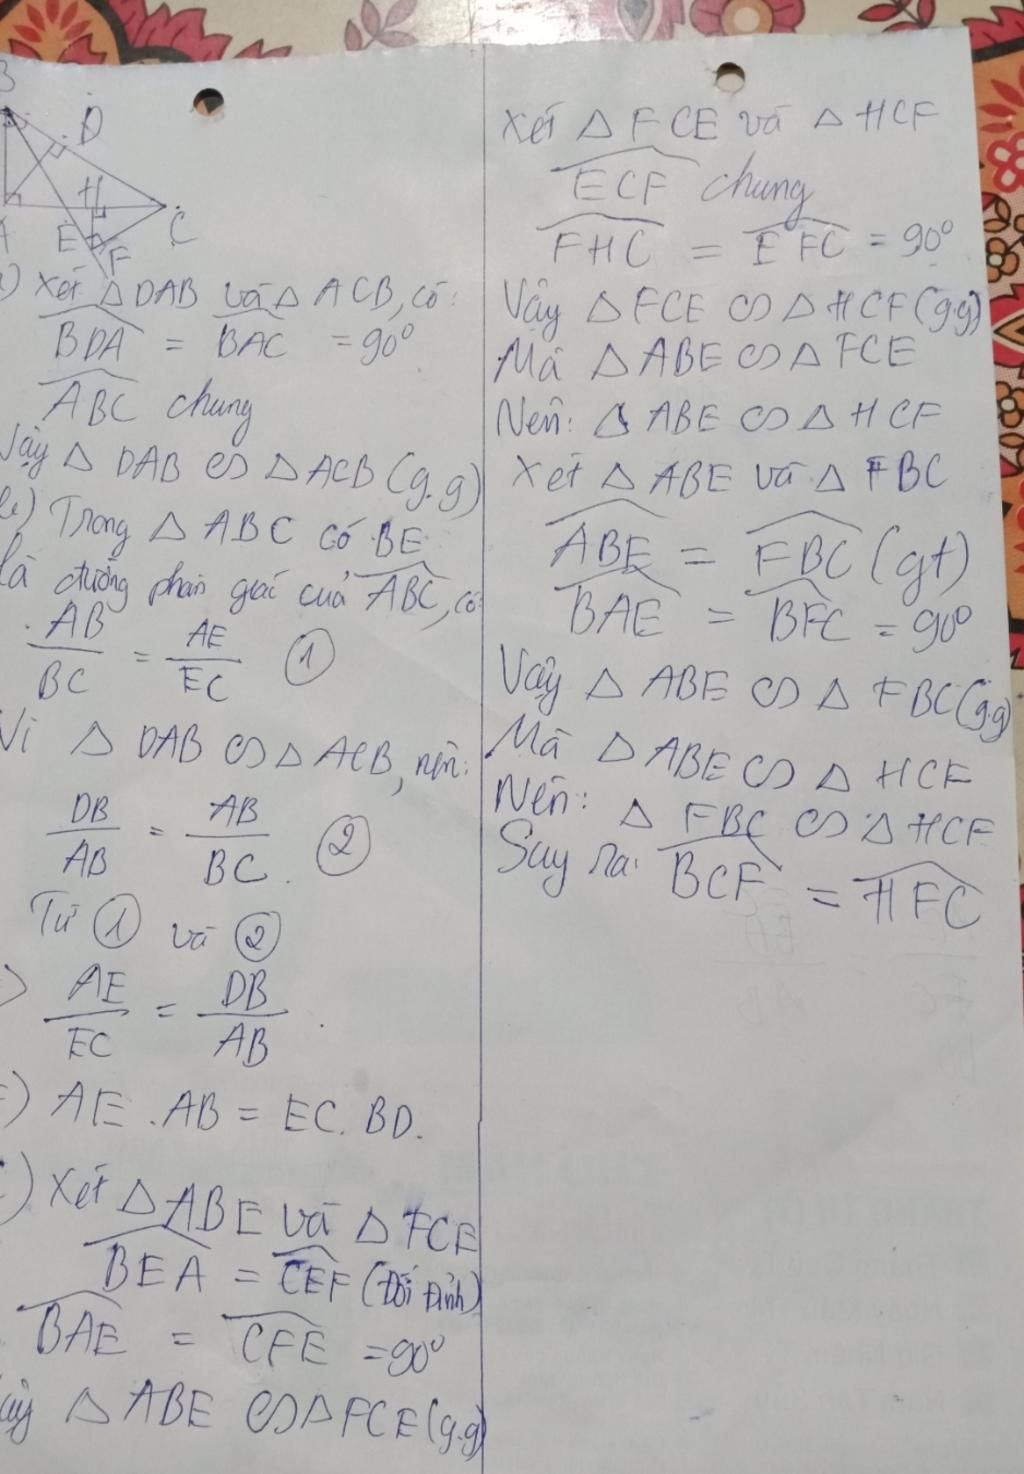 B
D
H
A
E
F
C
Xét △ DAB và △ ACB, có:
BDA = BAC = 90°
ABC chung
Vậy △ DAB ∽ △ ACB (g.g)
b) Trong △ ABC có BE
là đường phân giác của ABC, có:
AB/BC = AE/EC ①
Vì △ DAB ∽ △ ACB, nên:
DB/AB = AB/BC. ②
Từ ① và ②
=> AE/EC = DB/AB.
=) AE . AB = EC. BD.
c) Xét △ ABE và △ FCE
BEA = CEF (Đối Đỉnh)
BAE = CFE = 90°
Vậy △ ABE ∽ △ FCE (g.g)
Xét △ FCE và △ HCF
ECF chung
FHC = EFC = 90°
Vậy △ FCE ∽ △ HCF (g.g)
Mà △ ABE ∽ △ FCE
Nên: △ ABE ∽ △ HCF
Xét △ ABE và △ FBC
ABE = FBC (gt)
BAE = BFC = 90°
Vậy △ ABE ∽ △ FBC (g.g)
Mà △ ABE ∽ △ HCF
Nên: △ FBC ∽ △ HCF
Suy ra: BCF = HFC